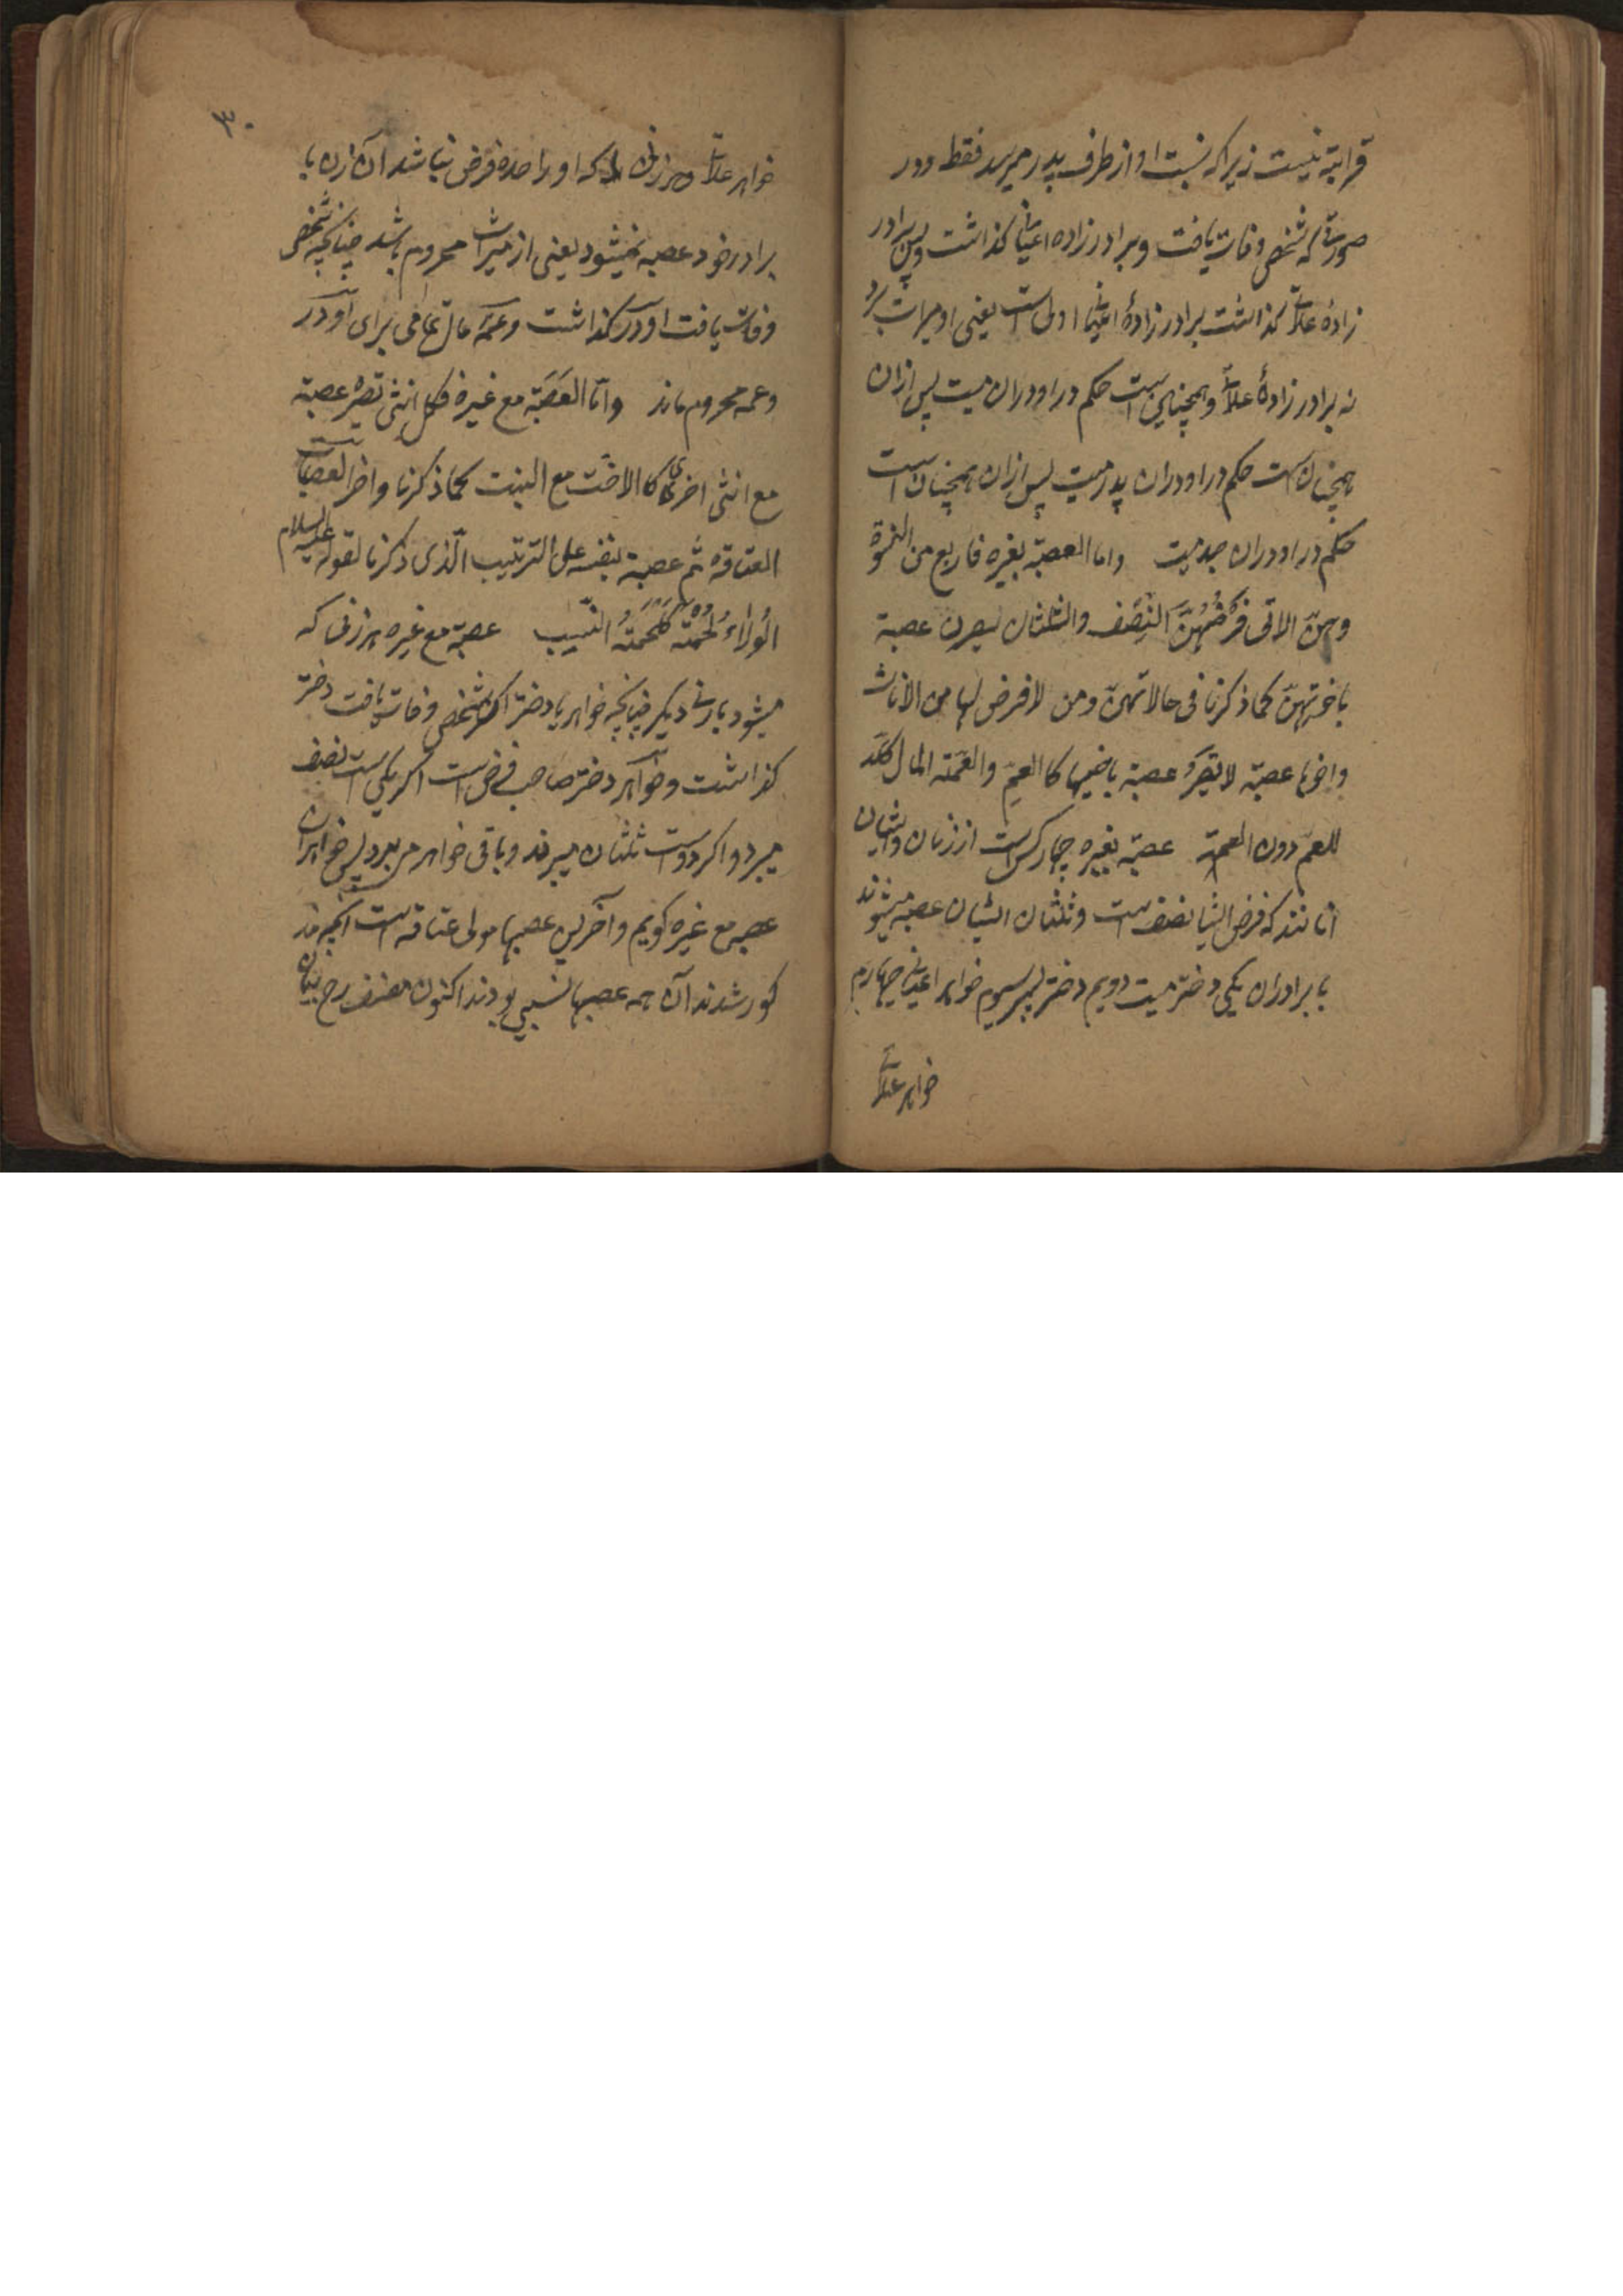 قرابتہ نیست زیرا کہ نسبت او از طرف پدر میرسد فقط و در
صورتیکہ شخصی وفات یافت و برادرزاده اعیانی گذاشت و پس برادر
زاده علاتی گذاشت برادرزادهٔ اعیانی اولی است یعنی او میراث برد
نہ برادرزادهٔ علاتی و همچنین است حکم در اودران میت پس ازان
همچنان است حکم در اودران پدر میت پس ازان همچنان است
حکم در اودران جد میت واما العصبة بغیره فاربع من النسوة
وهن الاتی فَرضُهُنَّ النِصف والثلثان یصرن عصبة
باخوتهن کما ذکرنا فی حالاتهن ومن لا فرض لها من الاناث
واخوها عصبة لا تصیرُ عصبة باخیها کا العمِ والعَمّتہ المال کلہ
للعم دون العمة عصبة بغیره چهار کس است از زنان و ایشان
آنانند کہ فرض ایشان نصف است و ثلثان ایشان عصبہ میشوند
با برادران یکی دختر میت دویم دختر پسر سیوم خواہر اعیانی چهارم
خواہر علاتی
۳۰
خواہر علاتی و هر زنی کہ او را حده فرض نباشد آن زن با
برادر خود عصبہ نمیشود یعنی از میراث محروم باشد چنانکچہ شخصی
وفات یافت اودر گذاشت و عمہ مال تمامی برای اودر
و عمہ محروم ماند وامّا العَصَبَة مع غیره فکل انثی تصیرُ عصبة
مع انثی اخری کا الاخت مع البنت کما ذکرنا واخر العصبات
العتاقہ ثم عصبة بنفسہ علی الترتیب الّذی ذکرنا لقولہ علیہ السلام
الوُلاءُ لُحْمَتہُ کَلُحْمَتہُ النَّسِیب عصبة مع غیره هر زنی کہ
میشود با زنی دیگر چنانکچہ خواہر با دختر اگر شخصی وفات یافت دختر
گذاشت و خواہر دختر صاحب فرض است اگر یکی است نصف
میبرد و اگر دو است ثلثان میبرند و باقی خواہر میبرد پس خواہران
عصبہ مع غیره گویم و آخرین عصبها مولی عتاقہ است آنچہ مذ
کور شدند آن همہ عصبها نسبی بودند اکنون مصنف رح بیان